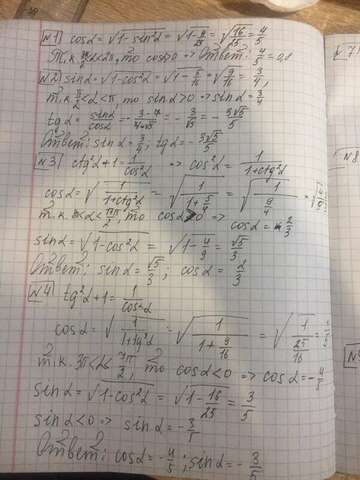 №1) cosα = √1-sin²α = √1-9/25 = √16/25 = 4/5
cosα>0 => Ответ: 4/5 = 0,8
№2) sinα = √1-cos²α = √1-7/16 = √9/16 = 3/4,
т.к π/2<α<π, то sinα>0 => sinα = 3/4
tgα = sinα/cosα = = -3/√7 =
Ответ: sinα = 3/4, tgα =
№3) ctg²α+1 = 1/cos²α => cos²α = 1/1+ctg²α
cosα = √1/1+ctg²α = √1/1+5/4 = √1/9/4 =
то cosα>0 => cosα = 2/3
sinα = √1-cos²α = √1-4/9 = √5/3
Ответ: sinα = √5/3; cosα = 2/3
№4) tg²α+1 = 1/cos²α
cosα = √1/1+tg²α = √1/1+9/16 = √1/25/16 =
т.к. 3π<α<7π/2, то cosα<0 => cosα = -4/5
sinα = √1-cos²α = √1-16/25 = 3/5
sinα<0 => sinα = -3/5
Ответ: cosα = -4/5; sinα = -3/5
№8